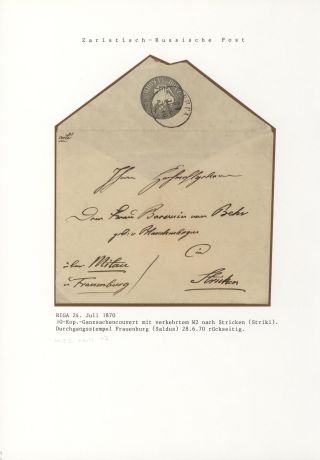 Zaristisch-Russische Post
Ihro Hochwohlgeboren
Der Frau Baronin von Behr
geb. v
in
über Mitau
Stricken
u Frauenburg
RIGA 24. Juli 1870
10-Kop.-Ganzsachencouvert mit verkehrtem WZ nach Stricken (Striki).
Durchgangsstempel Frauenburg (Saldus) 28.6.70 rückseitig.